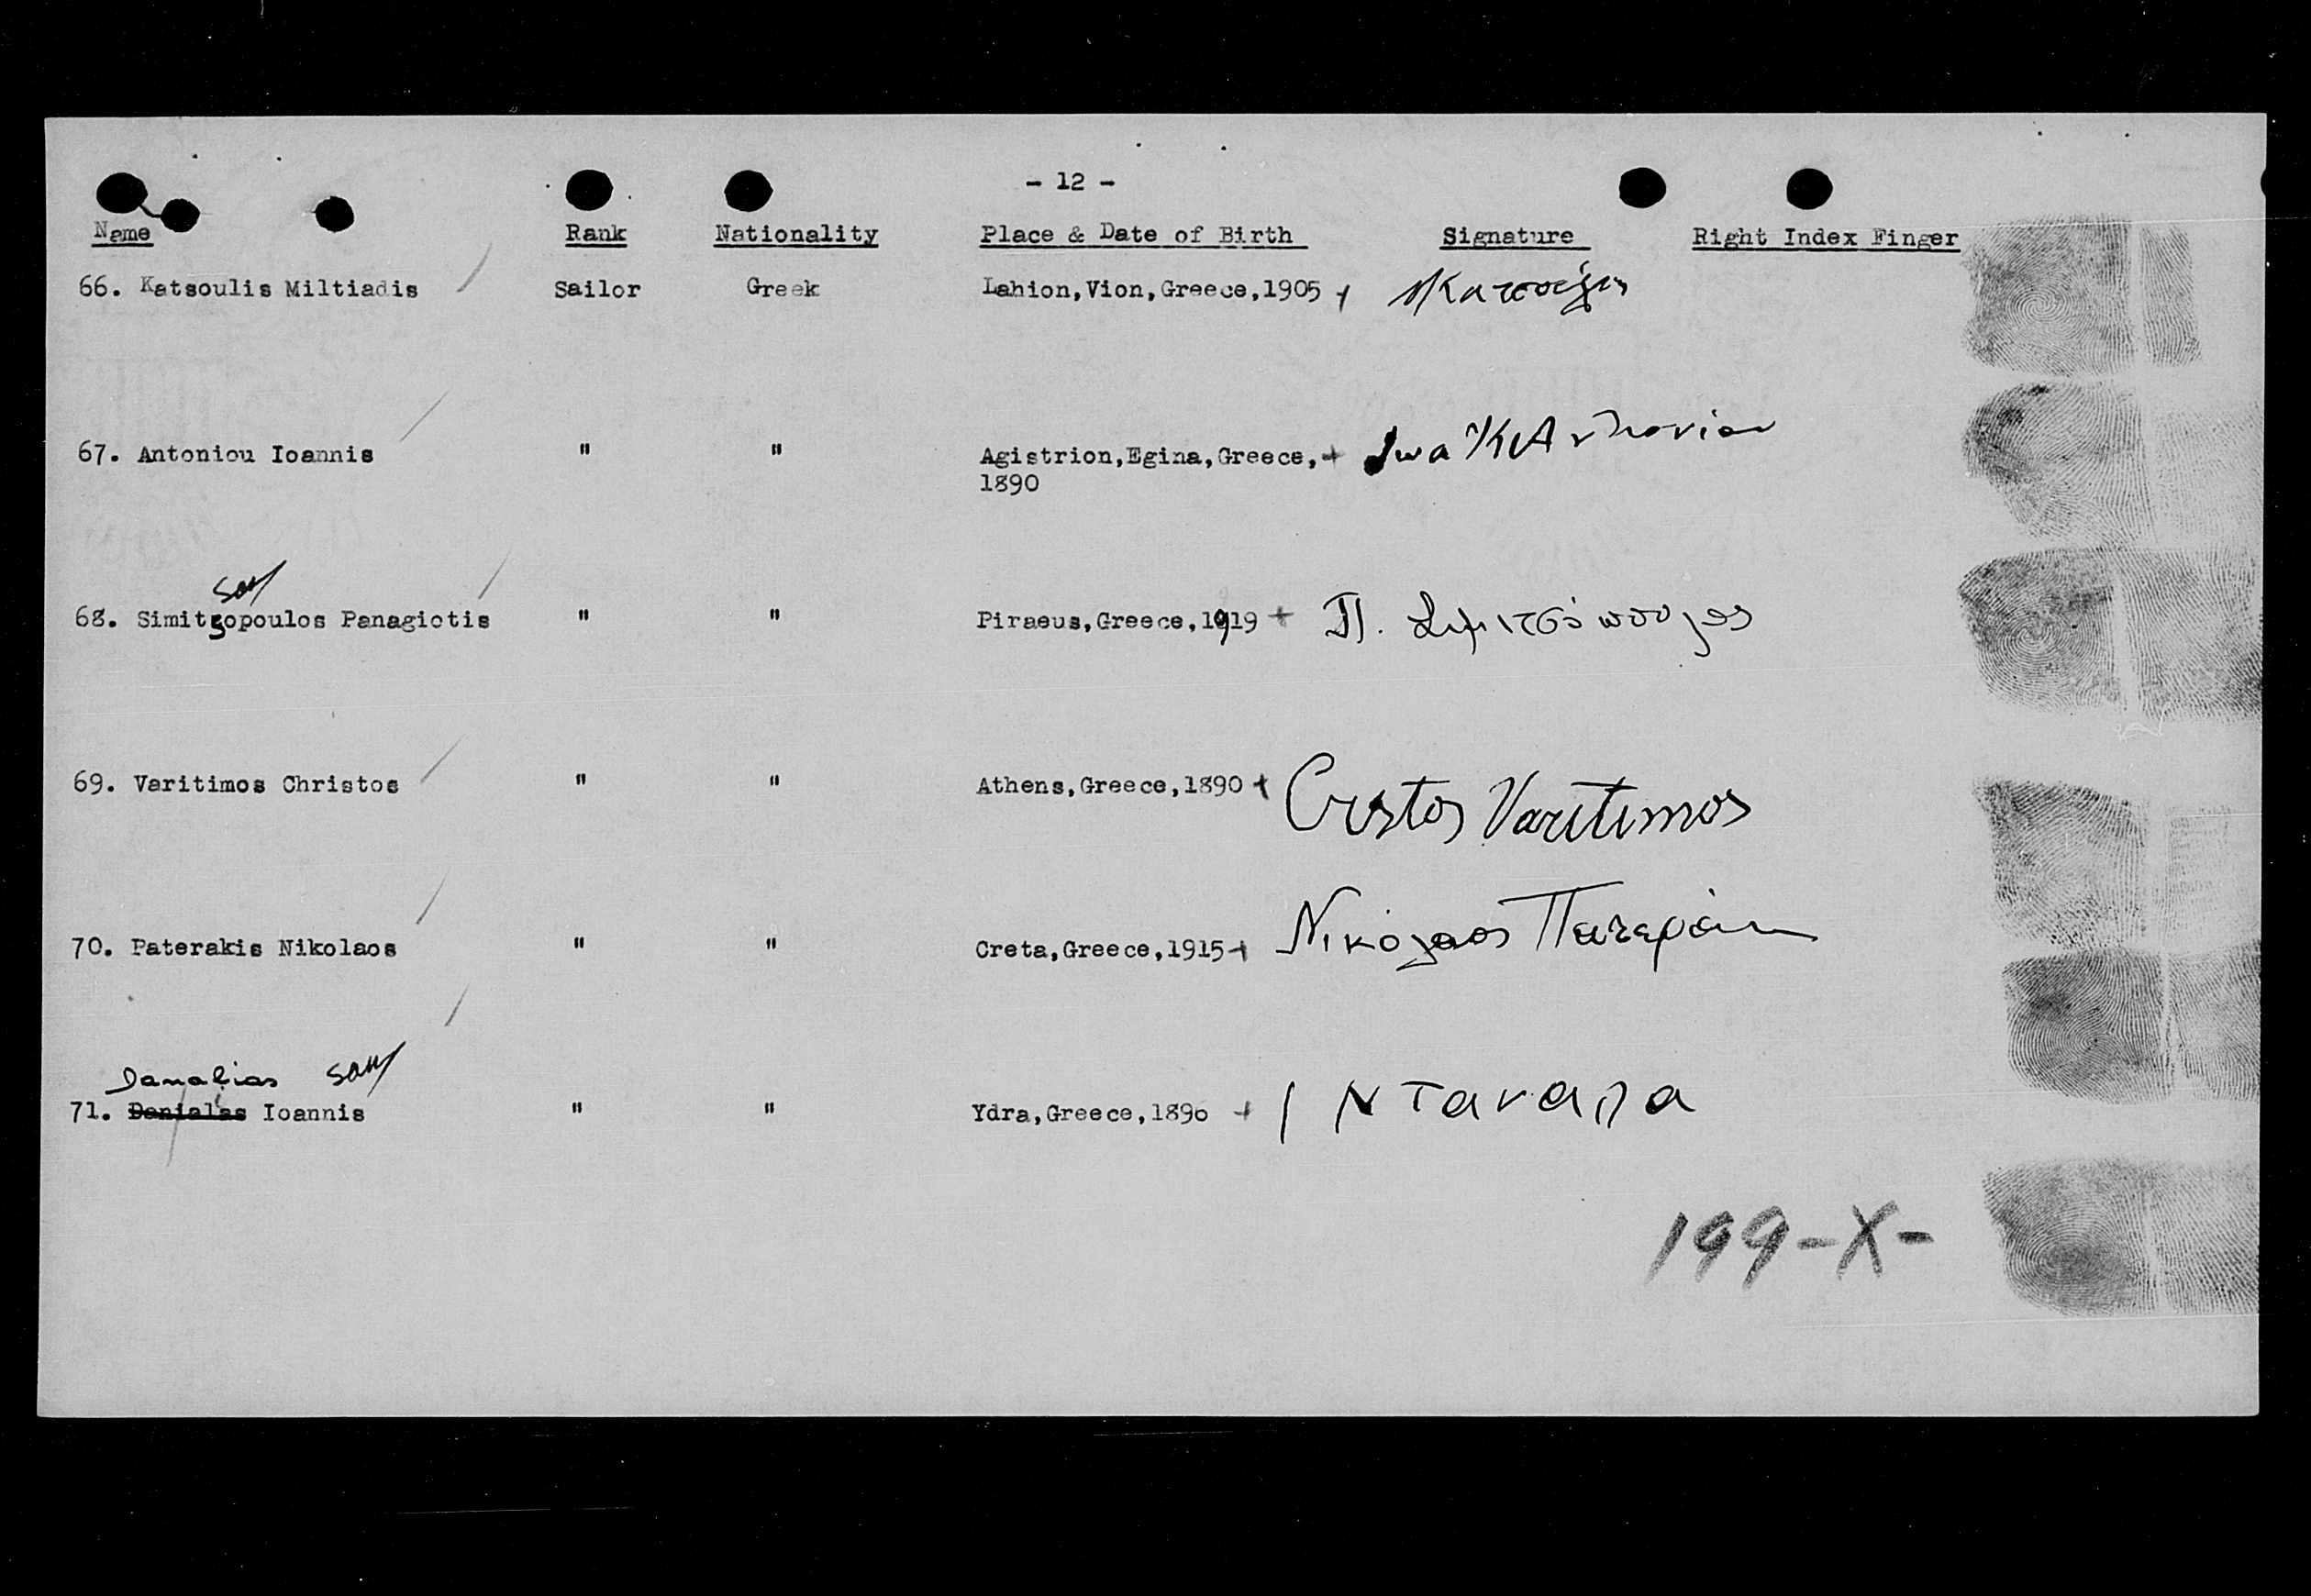 - 12 -
Name Rank Nationality Place & Date of Birth Signature Right Index Finger
66. Katsoulis Miltiadis Sailor Greek Lahion,Vion,Greece,1905
67. Antoniou Ioannis " " Agistrion,Egina,Greece,
1890
68. Simitsopoulos Panagiotis " " Piraeus,Greece,1919 Π. Σιμιτσόπουλος
69. Varitimos Christos " " Athens,Greece,1890 Cristos Varitimos
70. Paterakis Nikolaos " " Creta,Greece,1915 Νικόλαος Πατεράκη
Danalias
71. Danialas Ioannis " " Ydra,Greece,1890 Ι Νταναλα
199-X-